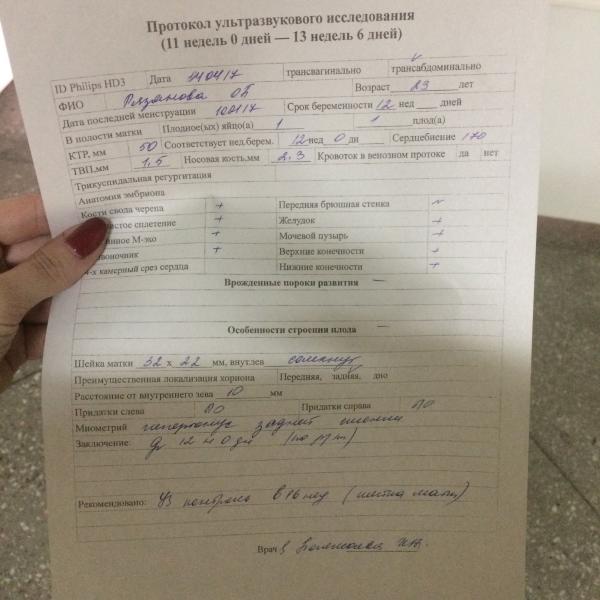 Протокол ультразвукового исследования
(11 недель 0 дней — 13 недель 6 дней)
ID Philips HD3 Дата 040417 трансвагинально трансабдоминально
ФИО Рязанова ОБ Возраст 23 лет
Дата последней менструации 100117 Срок беременности 12 нед ___ дней
В полости матки Плодное(ых) яйцо(а) 1 1 плод(а)
КТР, мм 50 Соответствует нед.берем. 12 нед 0 дн Сердцебиение 170
ТВП,мм 1,5 Носовая кость,мм 2,3 Кровоток в венозном протоке да нет
Трикуспидальная регургитация
Анатомия эмбриона
Кости свода черепа + Передняя брюшная стенка ~
истое сплетение + Желудок +
инное М-эхо + Мочевой пузырь +
воночник + Верхние конечности +
4-х камерный срез сердца Нижние конечности +
Врожденные пороки развития —
Особенности строения плода —
Шейка матки 32 х 22 мм, внут.зев сомкнут
Преимущественная локализация хориона Передняя, задняя, дно
Расстояние от внутреннего зева 10 мм
Придатки слева ПО Придатки справа ПО
Миометрий гипертонус задней стенки
Заключение: 12 н 0 дн
Рекомендовано: УЗ контроль в 16 нед (шейка матки)
Врач